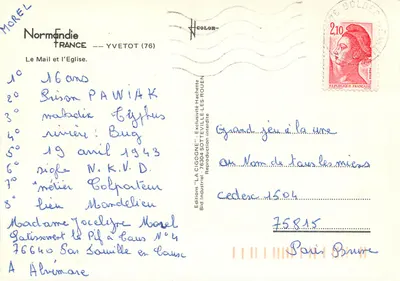 MOREL
Normandie
FRANCE —— YVETOT (76)
Le Mail et l'Eglise.
1° 16 ans
2° Prison PAWIAK
3° maladie Typhus
4° rivière: Bug
5° 19 avril 1943
6° sigle N.K.V.D.
7° métier Colporteur
8° lieu Mandelieu
Madame Jocelyne Morel
Lotissement le Pif à Caux N°4
76640 Fauville en Caux
A Alvimare
COLOR
Editions "LA CIGOGNE" - Exclusivité Hachette
Bld Industriel 76304 SOTTEVILLE-LES-ROUEN
Reproduction interdite
2,10
REPUBLIQUE FRANCAISE
Grand jeu à la une
au Nom de tous les miens
cedex 1504
75815
Paris Brune